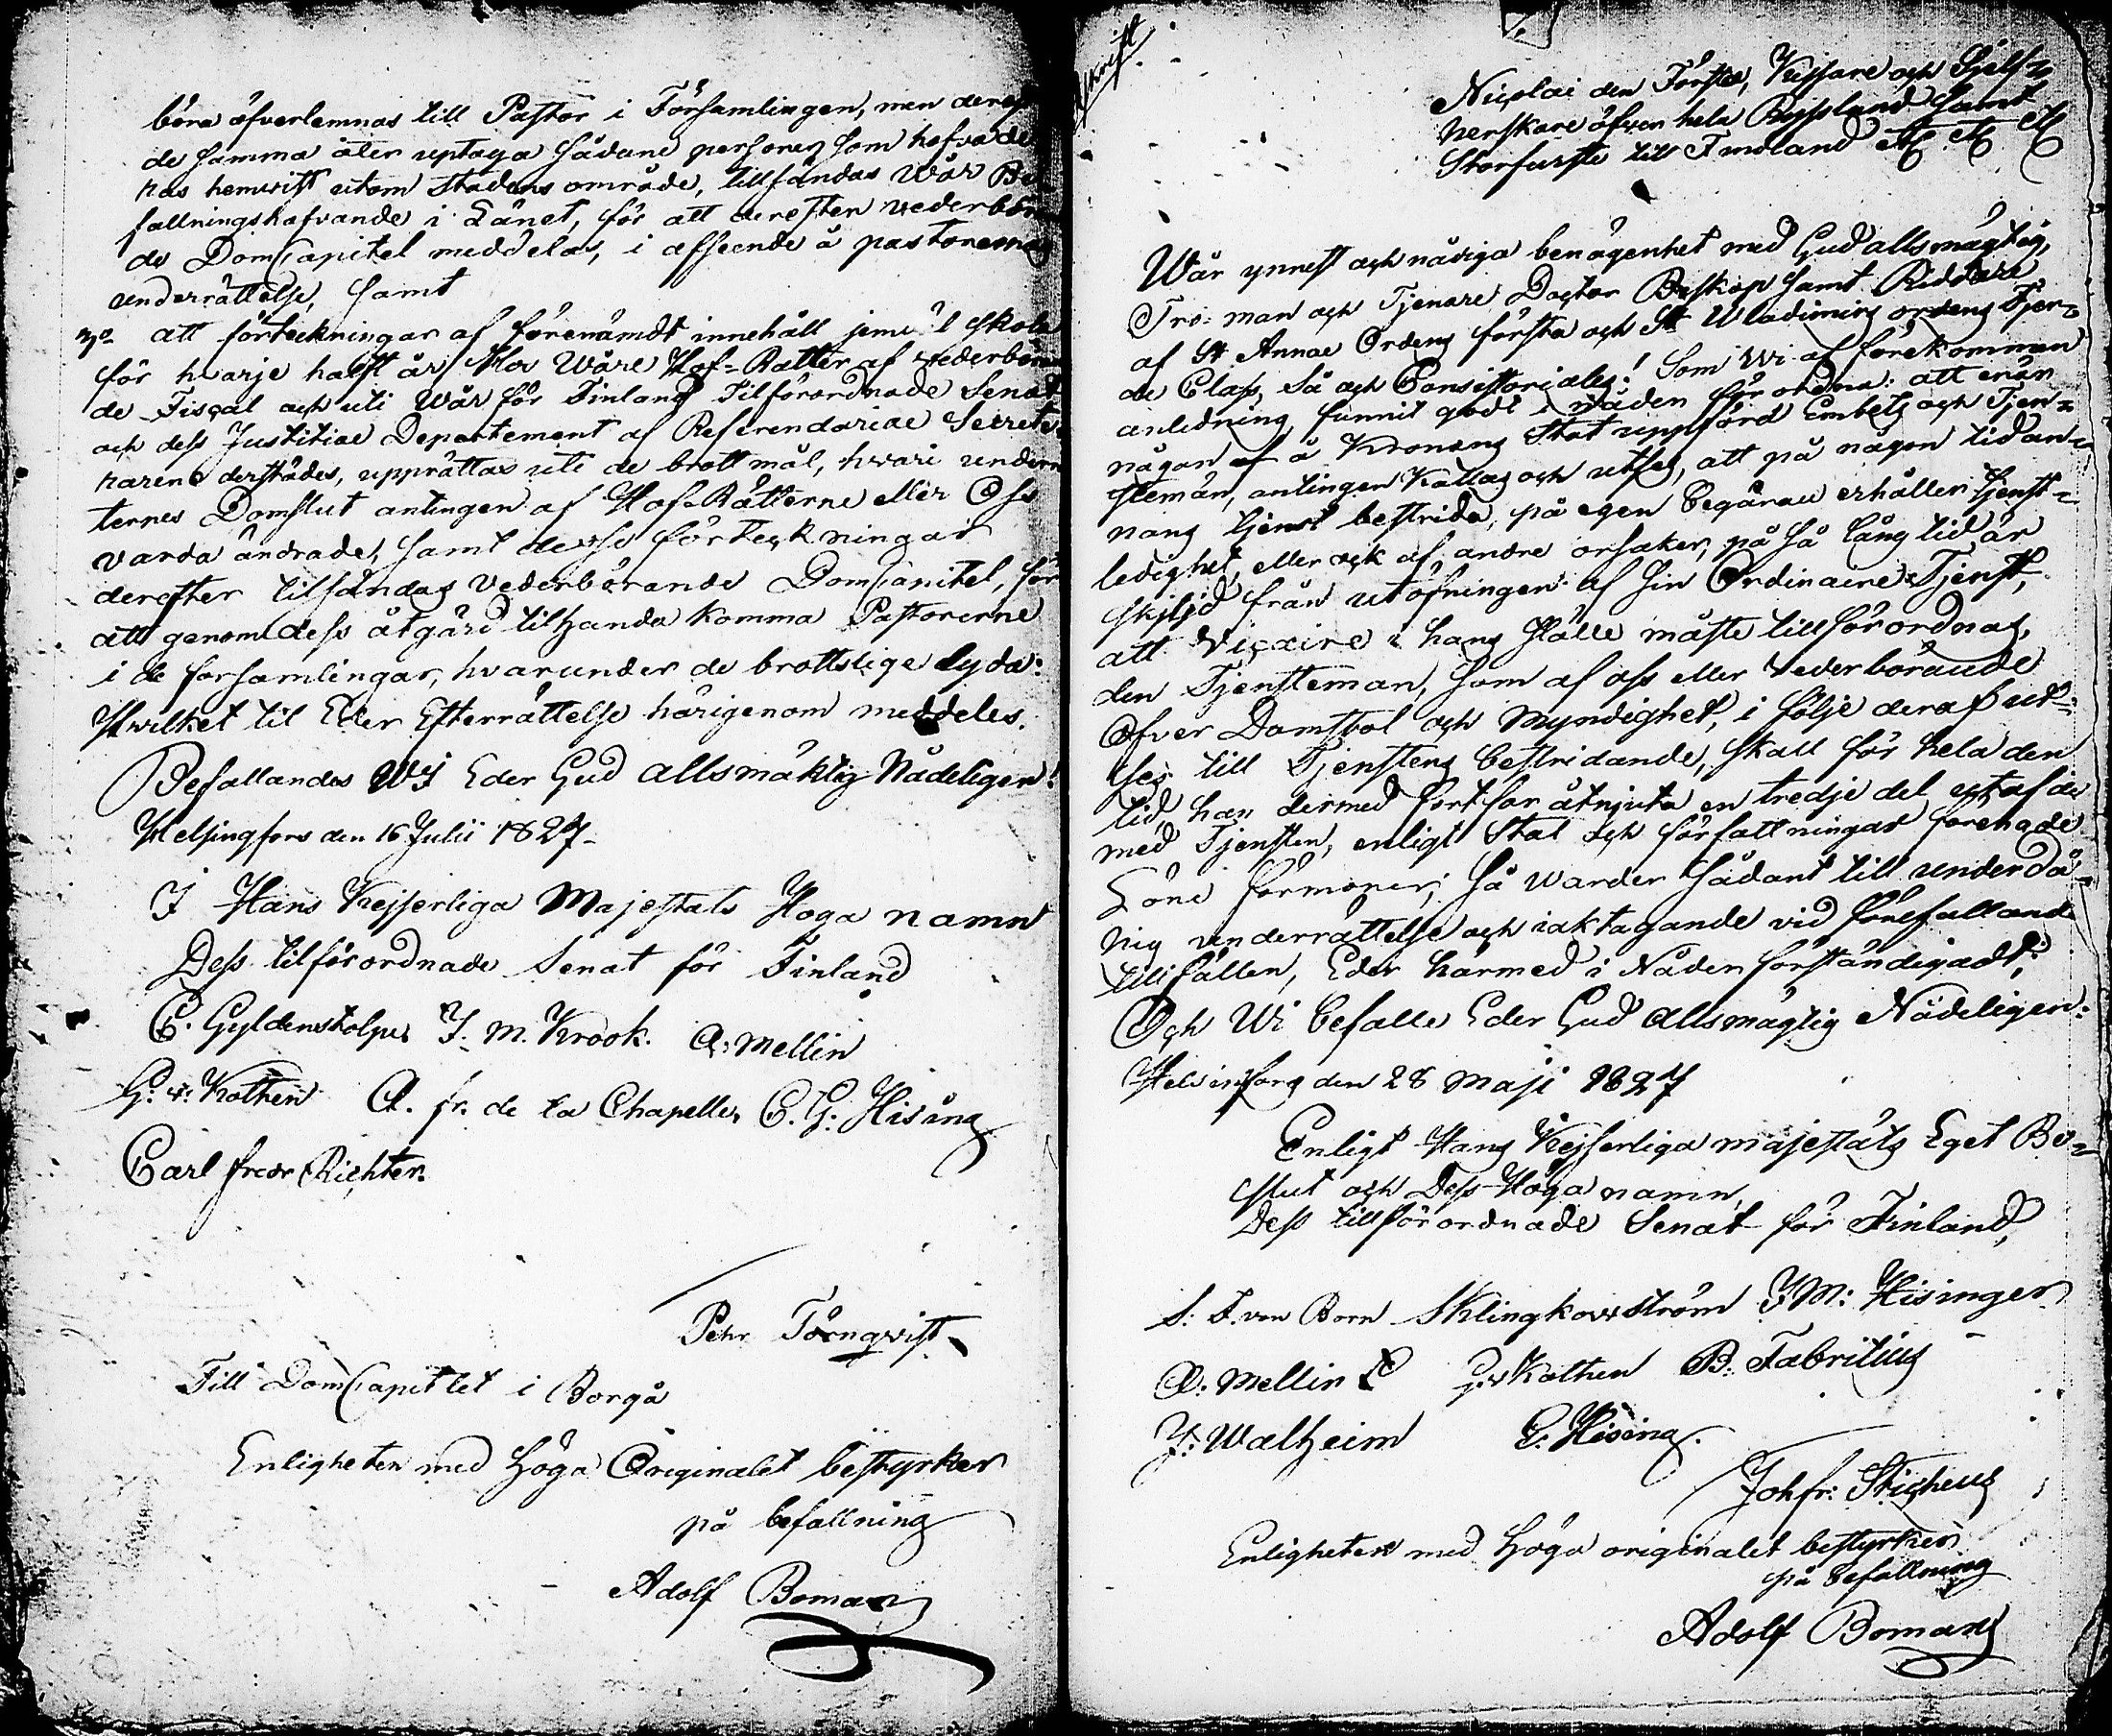 böra öfverlemnas till Pastor i Församlingen, men deref
de samma åter uptaga sådane personer som hafva de
ras hemvist utom stadens område, tillsändas Wår Be
fallningshafvande i Länet, för att derefter vederbör
de DomCapitel meddelas, i afseende å pastorernas
underrättelse, samt
3o att förteckningar af förenämdt innehåll jemväl skola
för hvarje halft år hos Wåre Hof-Rätter af vederböran
de Fiscal och uti Wår för Finland Tilförordnade Senat
och dess Justitiae Departement af Referendariae Secrete
rarene derstädes, upprättas uti de brottmål, hvari under
ternes Domslut antingen af Hof-Rätterne eller Oss
varda ändrade, samt desse förteckningar
derefter tilsändas Vederbörande DomCapitel, för
att genom dess åtgärd tilhanda komma Pastorerne
i de församlingar, hvarunder de brottslige lyda:
Hwilket til Eder Efterrättelse härigenom meddeles.
Befallandes WI Eder Gud allsmäktig Nådeligen!
Helsingfors den 16 Julii 1827-
I Hans Kejserliga Majestäts Höga namn
Dess tilförordnade Senat för Finland
C. Gyldenstolpe J. M. Krook. A: Mellin
G: v: Kothen A. fr. de la Chapelle, C. G: Hising
Carl Fredr Richter.
Pehr Törnqvist
Till DomCapitlet i Borgå
Enligheten med höga Originalet bestyrker
på befallning
Adolf Boman
Afskrift.
Nicolai den Förste, Kejsare och Sjelf-
herskare öfver hela Ryssland samt
Storfurste till Finland etc etc etc
Wår ynnest och nådiga benägenhet med Gud allsmägtig,
Tro-man och Tjenare Doctor Biskop samt Riddare
af St Annae Ordens första och St Wladimirs ordens Fjer-
de Class, så och Consistoriales! Som Wi af förekommen
anledning funnit godt i nåden förordna: att enär
någon af å Kronans Stat uppförd Embets och Tjen-
steman, antingen kallas och utses, att på någon tid an-
nans tjenst bestrida, på egen begäran erhåller tjenst-
ledighet, eller ock af andre orsaker, på så lång tid är
skiljd från utöfningen af sin Ordinaire Tjenst,
att Vicaire i hans ställe måste tillförordnas,
den Tjensteman, som af oss eller Vederbörande
Öfver Domstol och Myndighet, i följe deraf ut-
ses till Tjenstens bestridande, skall för hela den
tid han dermed fortfar åtnjuta en tredje del utaf de
med Tjensten, enligt Stat och författningar förenade
Löne förmoner; så warder sådant till underdå-
nig underrättelse och iakttagande vid förefallande
tillfällen, Eder härmed i Nåder förständigadt;
Och Wi befalle Eder Gud Allsmägtig Nådeligen:
Helsinfors den 28 Maji 1827
Enligt Hans Kejserliga majestäts Eget Be-
slut och Dess Höga namn,
Dess tillförordnade Senat för Finland,
S: F. von Born S Klingkowström J M: Hisinger
A: Mellin G: v Kothen B: Fabritius
J: Walheim C. Hising.
Joh fr: Sticheus
Enligheten med höga originalet bestyrker
på befallning
Adolf Boman